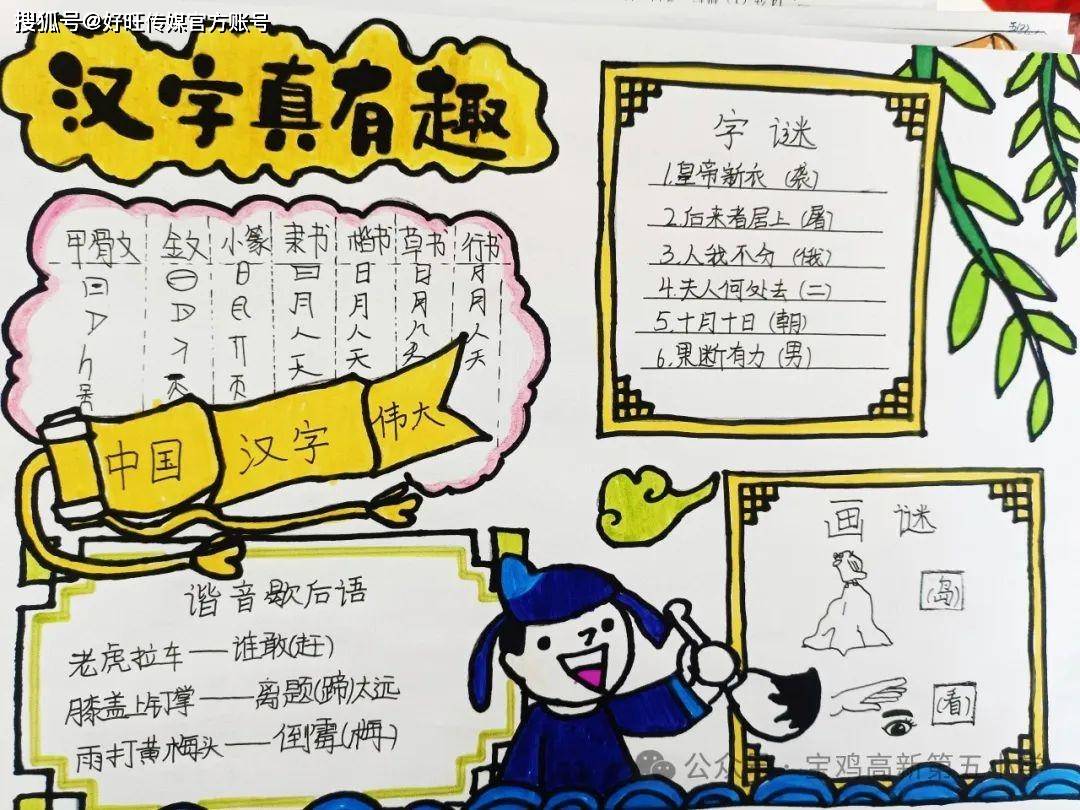 搜狐号@好旺传媒官方账号
汉字真有趣
甲骨文 金文 小篆 隶书 楷书 草书 行书
日 日 日 日
月 月 月 月
人 人 人 人
天 天 天
中国 汉字 伟大
字 谜
1.皇帝新衣 (袭)
2.后来者居上 (屠)
3.人我不分 (俄)
4.夫人何处去 (二)
5.十月十日 (朝)
6.果断有力 (男)
画 谜
(岛)
(看)
谐音歇后语
老虎拉车——谁敢(赶)
膝盖上钉掌——离题(蹄)太远
雨打黄梅头——倒霉(梅)
公众号·宝鸡高新第五小学